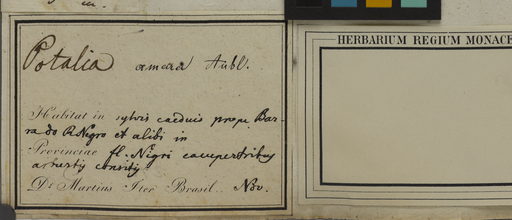 Potalia amara Aubl.
Habitat in sylvis caeduis prope Bar-
ra do R. Negro et alibi in
Provinciae fl. Nigri campestribus
D. Martius Iter Brasil. Nov.
HERBARIUM REGIUM MONACE